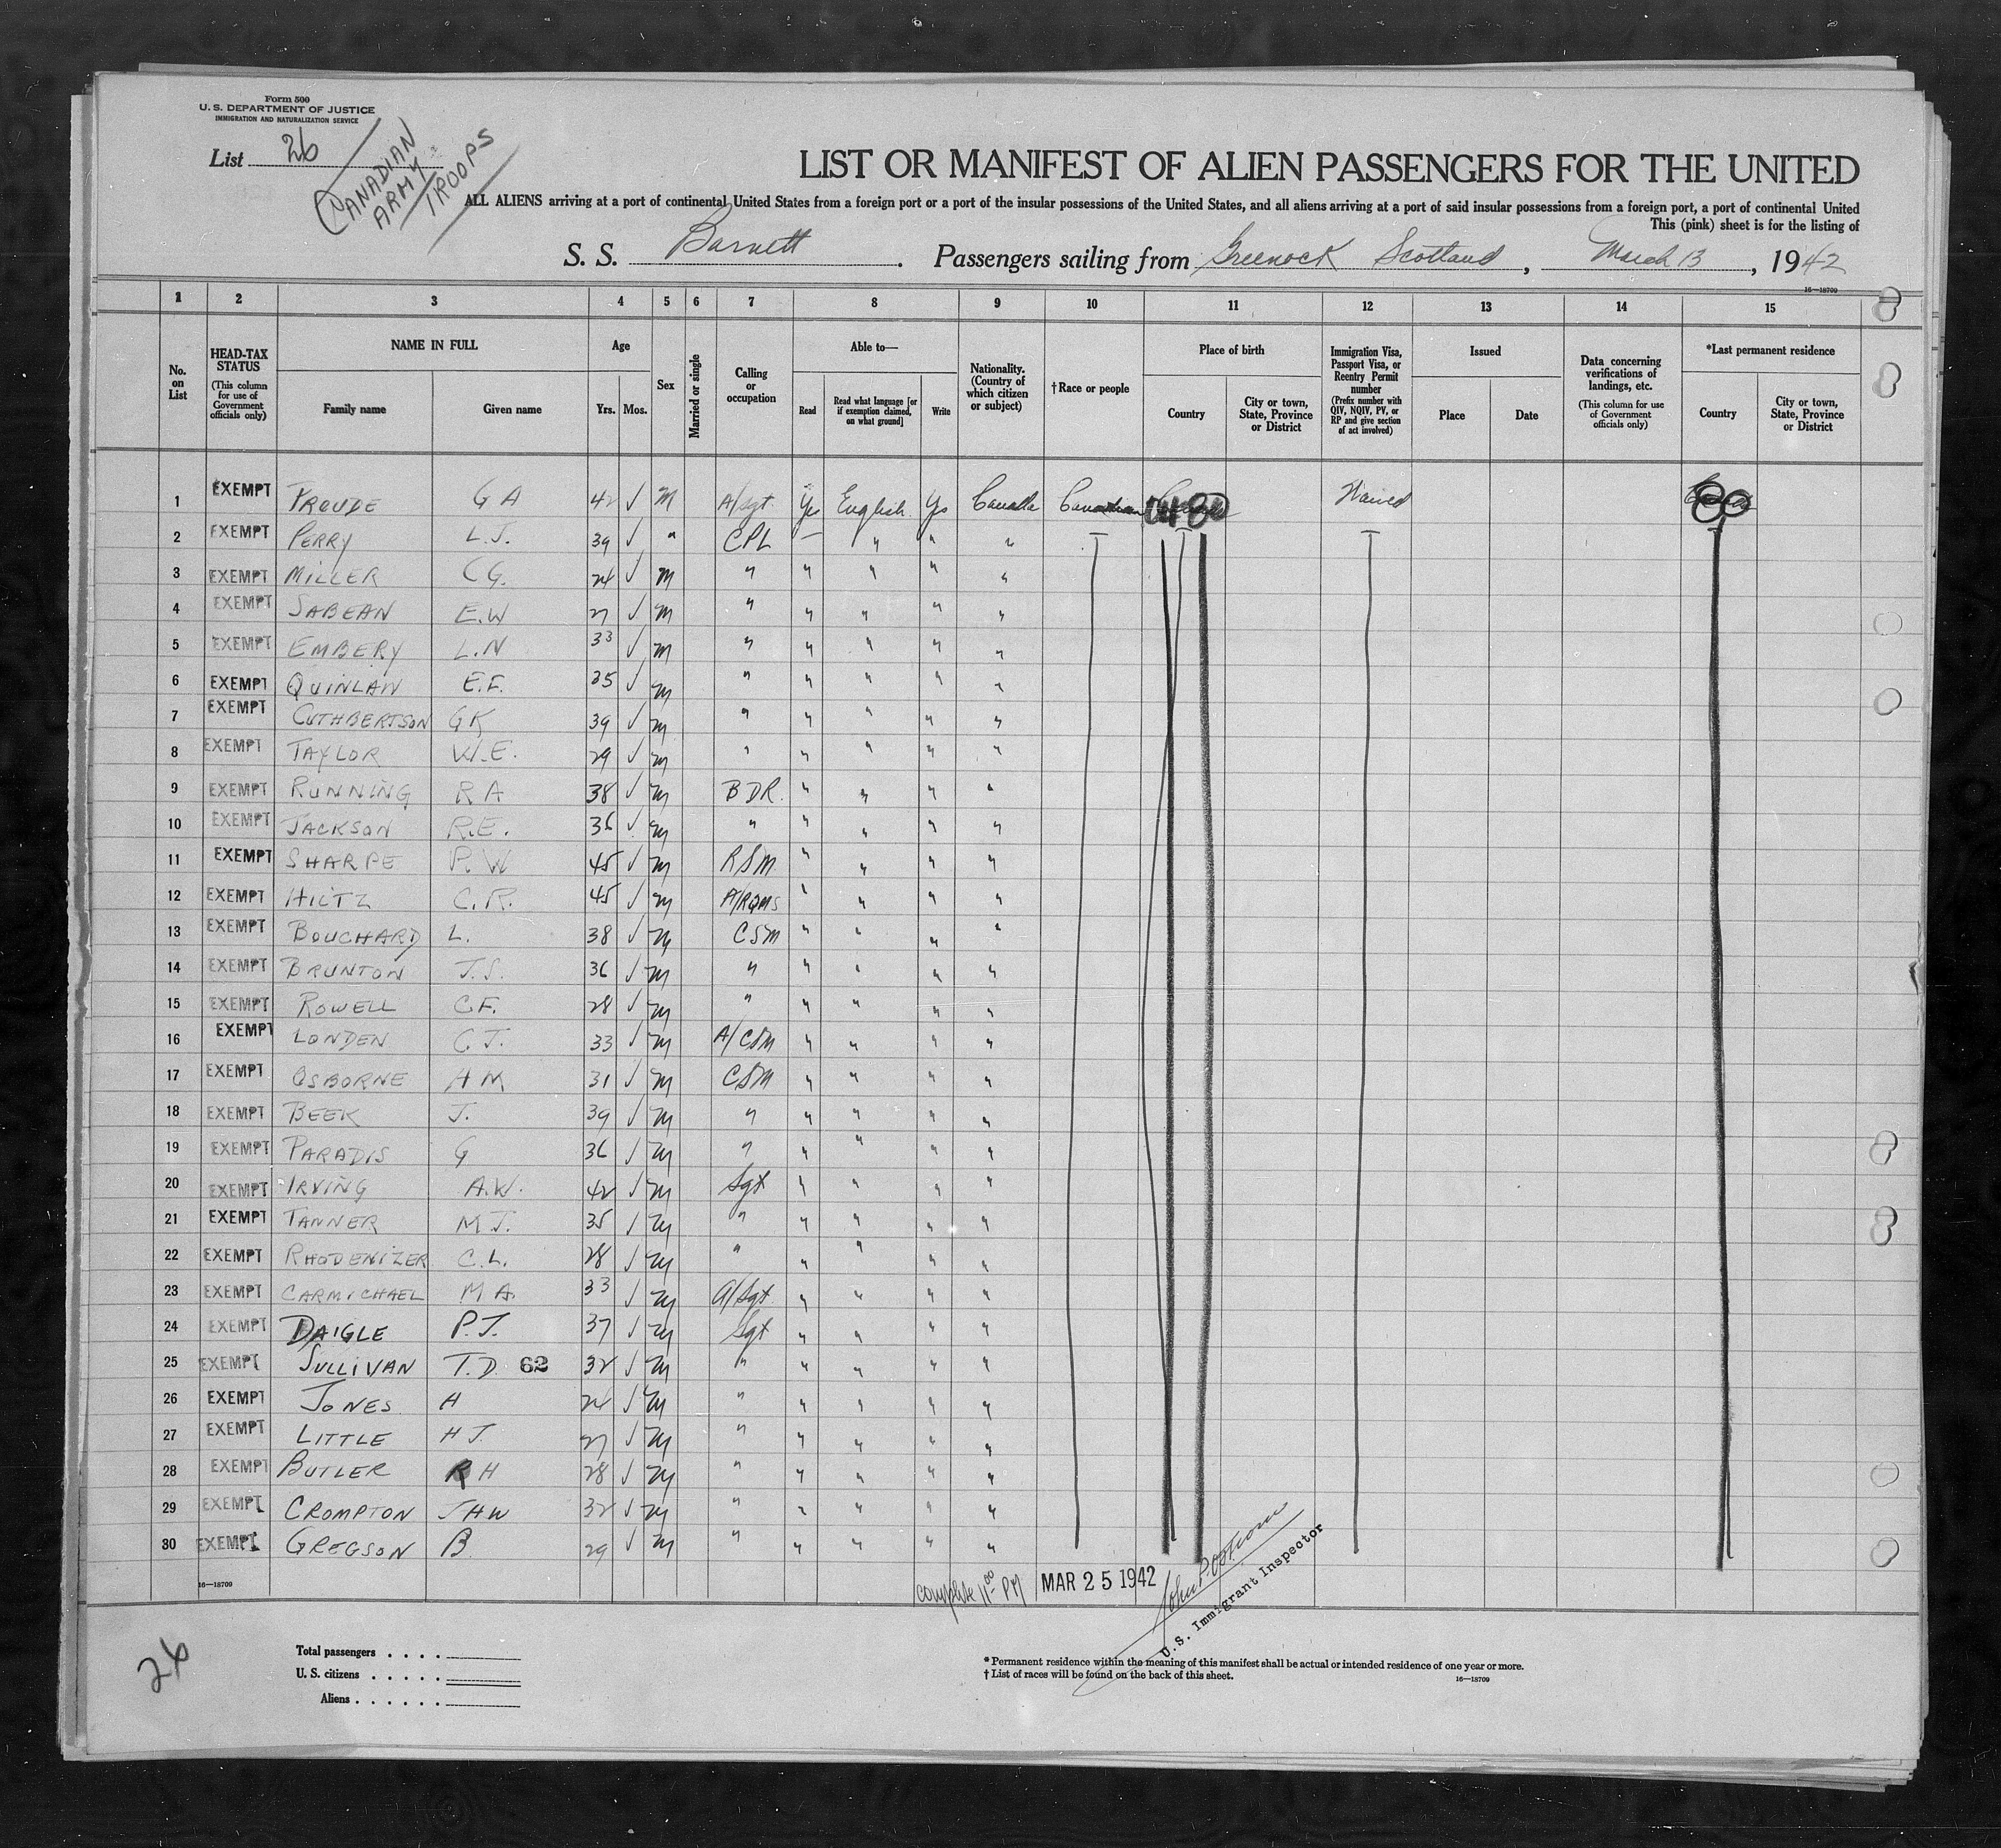 Form 500
U. S. DEPARTMENT OF JUSTICE
IMMIGRATION AND NATURALIZATION SERVICE
List 26
CANADIAN
ARMY
TROOPS
LIST OR MANIFEST OF ALIEN PASSENGERS FOR THE UNITED
ALL ALIENS arriving at a port of continental United States from a foreign port or a port of the insular possessions of the United States, and all aliens arriving at a port of said insular possessions from a foreign port, a port of continental United
This (pink) sheet is for the listing of
S. S. Barnett. Passengers sailing from Greenock Scotland, March 13, 1942
16—18709
1 2 3 4 5 6 7 8 9 10 11 12 13 14 15
No. on List
HEAD-TAX STATUS (This column for use of Government officials only)
NAME IN FULL Family name Given name
Age Yrs. Mos.
Sex
Married or single
Calling or occupation
Able to— Read Read what language [or if exemption claimed, on what ground] Write
Nationality. (Country of which citizen or subject)
†Race or people
Place of birth Country City or town, State, Province or District
Immigration Visa, Passport Visa, or Reentry Permit number (Prefix number with QIV, NQIV, PV, or RP and give section of act involved)
Issued Place Date
Data concerning verifications of landings, etc. (This column for use of Government officials only)
*Last permanent residence Country City or town, State, Province or District
1 EXEMPT PROUDE G A 42 √ M A/Sgt. Yes English Yes Canada Canadian Waived
2 EXEMPT PERRY L.J. 39 √ " CPL — " " "
3 EXEMPT MILLER C G. 24 √ M " " " " "
4 EXEMPT SABEAN E.W 27 √ M " " " " "
5 EXEMPT EMBERY L.N 33 √ M " " " " "
6 EXEMPT QUINLAN E.F. 25 √ M " " " " "
7 EXEMPT CUTHBERTSON G K 39 √ M " " " " "
8 EXEMPT TAYLOR W.E. 29 √ M " " " " "
9 EXEMPT RUNNING R A 38 √ M BDR. " " " "
10 EXEMPT JACKSON R.E. 36 √ M " " " " "
11 EXEMPT SHARPE P. W 45 √ M RSM " " " "
12 EXEMPT HILTZ C. R. 45 √ M A/RQMS " " " "
13 EXEMPT BOUCHARD L. 38 √ M CSM " " " "
14 EXEMPT BRUNTON J.S. 36 √ M " " " " "
15 EXEMPT ROWELL C.F. 28 √ M " " " " "
16 EXEMPT LONDEN C J. 33 √ M A/CSM " " " "
17 EXEMPT OSBORNE H M 31 √ M CSM " " " "
18 EXEMPT BEEK J. 39 √ M " " " " "
19 EXEMPT PARADIS G 36 √ M " " " " "
20 EXEMPT IRVING A.W. 42 √ M Sgt " " " "
21 EXEMPT TANNER M J. 35 √ M " " " " "
22 EXEMPT RHODENIZER C.L. 28 √ M " " " " "
23 EXEMPT CARMICHAEL M A. 33 √ M A/Sgt. " " " "
24 EXEMPT DAIGLE P.J. 37 √ M Sgt " " " "
25 EXEMPT SULLIVAN T.D. 62 32 √ M " " " " "
26 EXEMPT JONES H 24 √ M " " " " "
27 EXEMPT LITTLE H J. 27 √ M " " " " "
28 EXEMPT BUTLER R H 28 √ M " " " " "
29 EXEMPT CROMPTON J H W 32 √ M " " " " "
30 EXEMPT GREGSON B. 29 √ M " " " " "
16—18709
complete 11 00 PM
MAR 25 1942
U.S. Immigrant Inspector
26
Total passengers . . . .
U. S. citizens . . . . .
Aliens . . . . . .
* Permanent residence within the meaning of this manifest shall be actual or intended residence of one year or more.
† List of races will be found on the back of this sheet.
16—18709